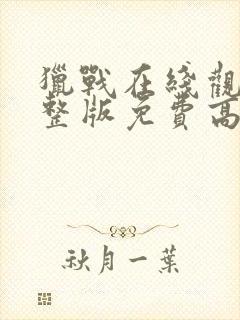 獵戰在綫觀
整版免費高
秋月一葉